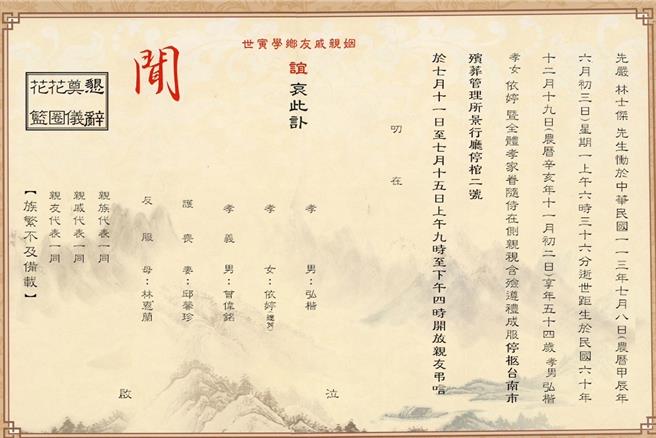 先嚴 林士傑 先生慟於中華民國一一三年七月八日(農曆甲辰年
六月初三日)星期一上午六時三十六分逝世距生於民國六十年
十二月十九日(農曆辛亥年十一月初二日)享年五十四歲 孝男弘楷
孝女 依婷 暨全體孝家眷隨侍在側親視含殮遵禮成服停柩台南市
殯葬管理所景行廳停棺二號
於七月十一日至七月十五日上午九時至下午四時開放親友弔唁
叨在
姻親戚友鄉學寅世
誼 哀此訃
聞
孝男：弘楷
孝女：依婷
孝義男：曾偉銘
護喪妻：邱馨珍
反服母：林惠蘭
泣
啟
親族代表一同
親戚代表一同
親友代表一同
【族繁不及備載】
懇辭
奠儀
花圈
花籃